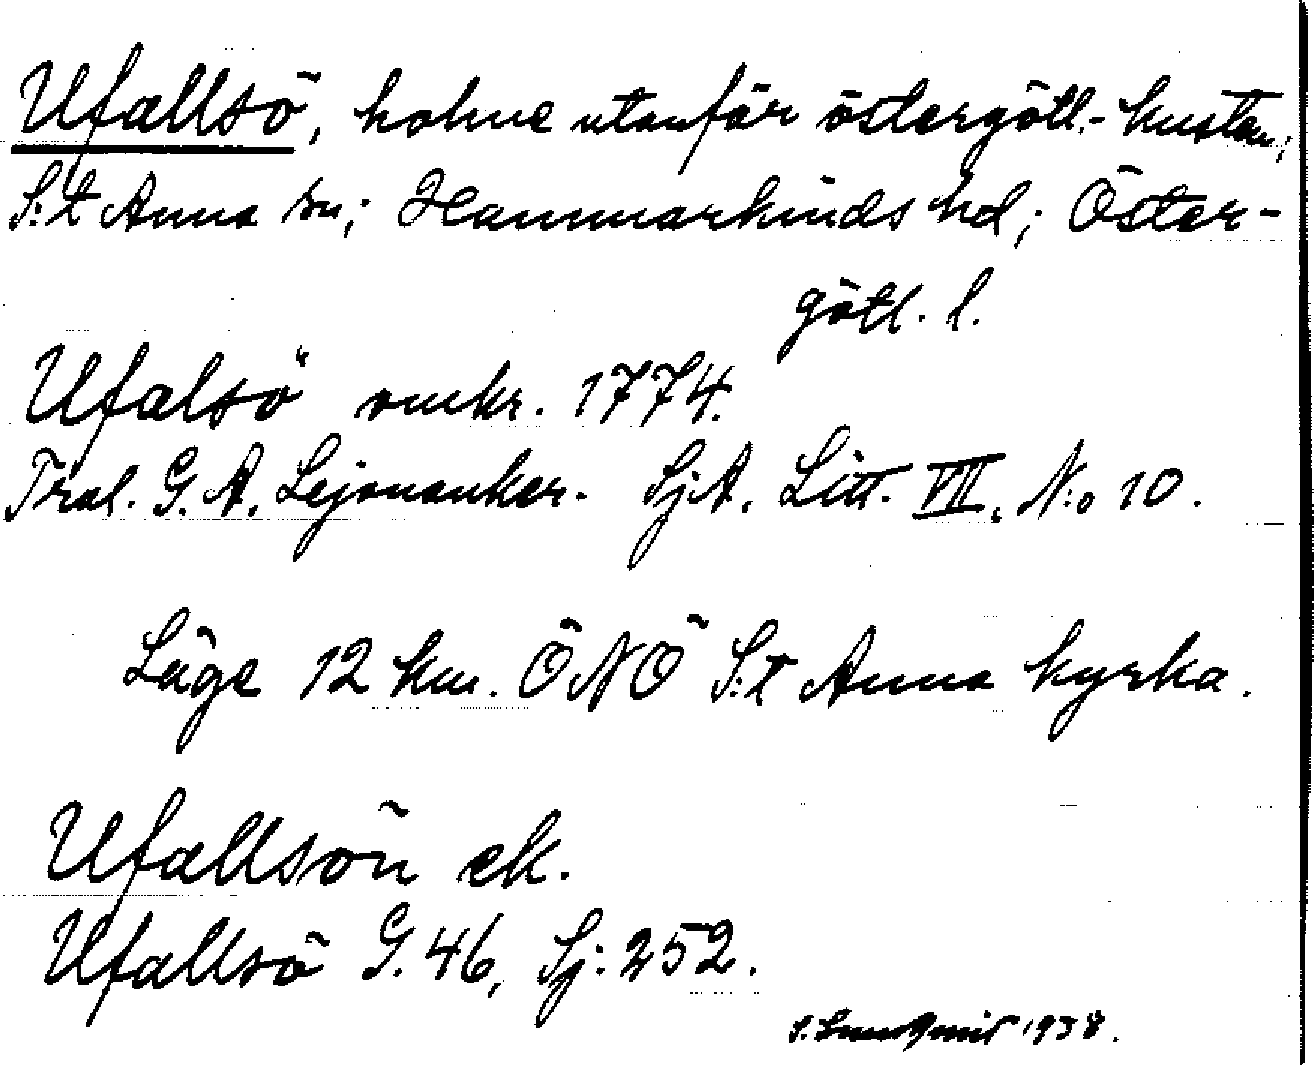 Ufallsö, holme utanför östergötl.- kusten;
S:t Anna sn; Hammarkinds hd; Öster-
götl. l.
Ufalsö omkr. 1774.
Tral. G. A. Lejonanker. SjA. Litt. VII, N:o 10.
Läge 12 km. ÖNÖ S:t Anna kyrka.
Ufallsön ek.
Ufallsö G. 46, Sj: 252.
S. Lundqvist 1938.